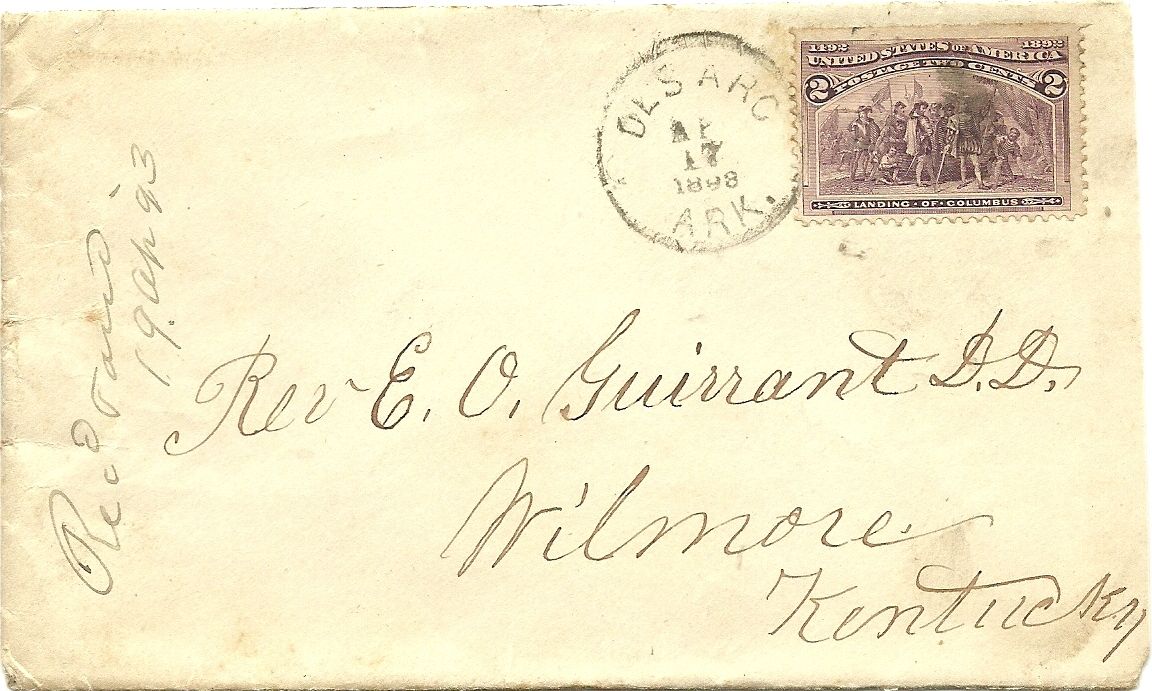 DES ARC
AP
17
1893
ARK.
1492 1892
UNITED STATES OF AMERICA
POSTAGE TWO CENTS
2 2
LANDING · OF · COLUMBUS
Rev E. O. Guirrant D.D.
Wilmore
Kentucky
Recd
19 Ap 93